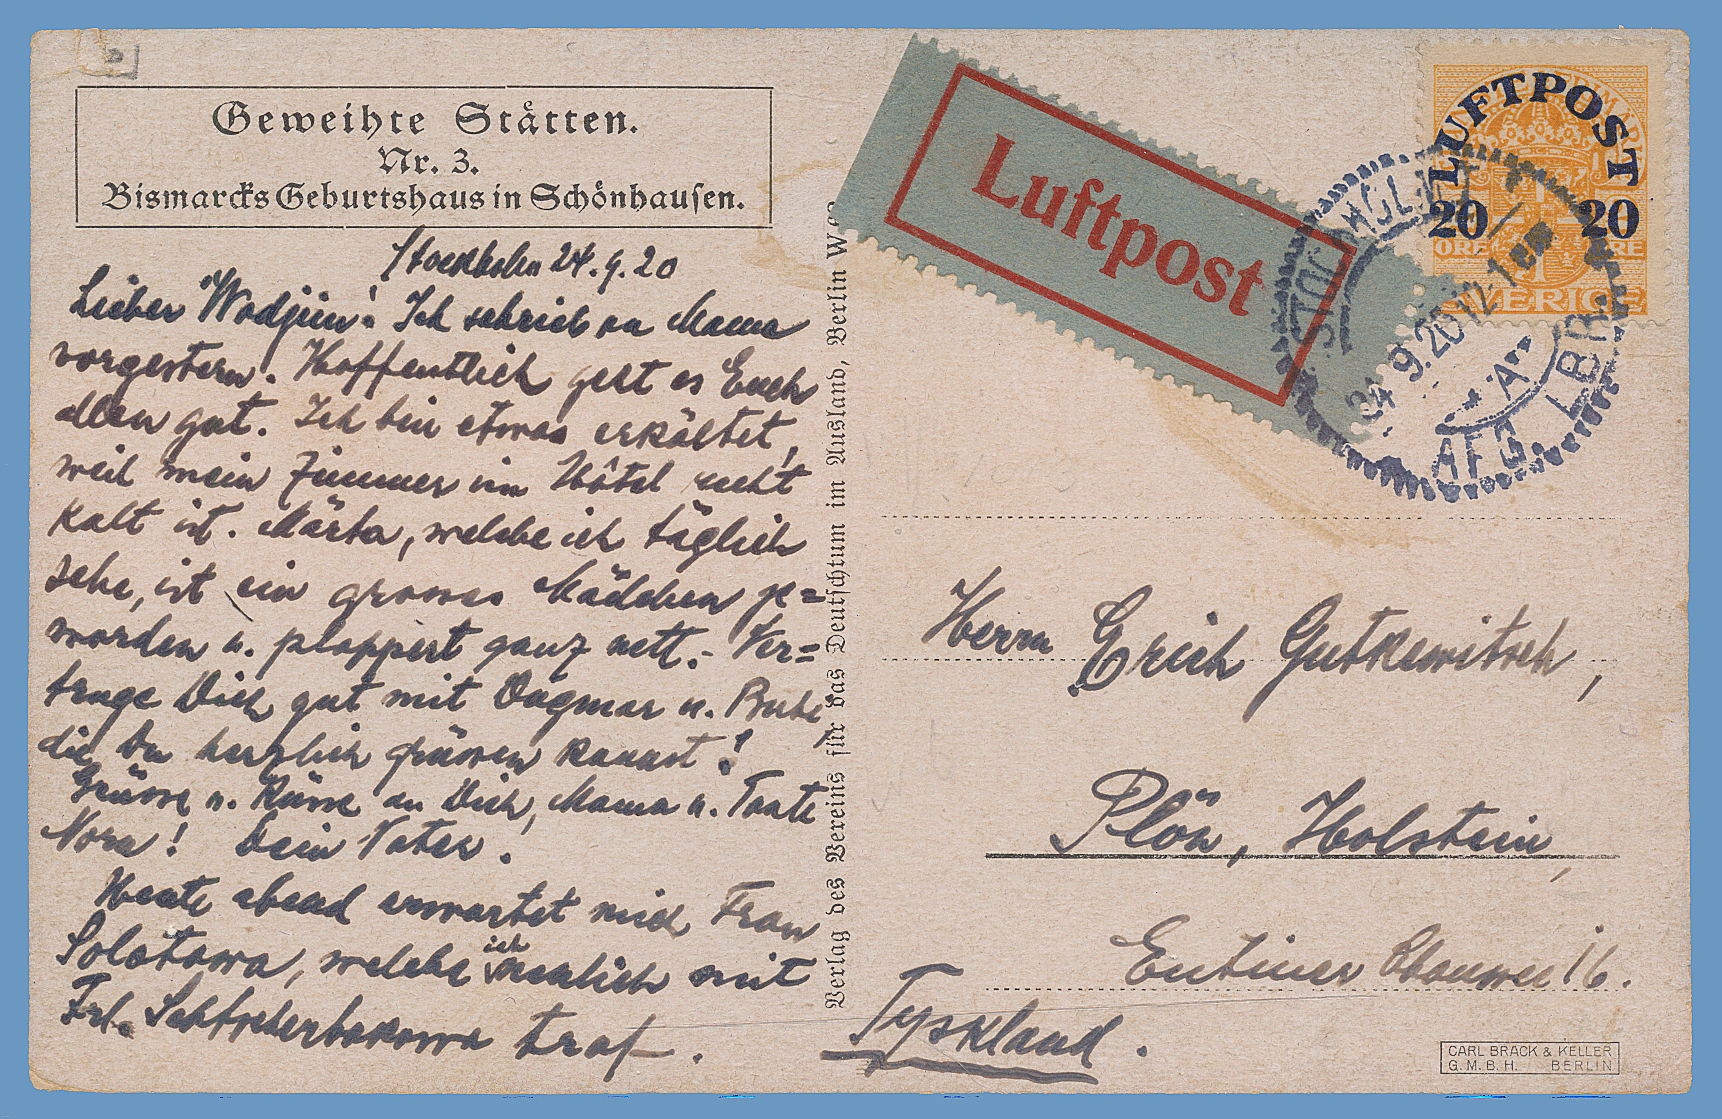 Geweihte Stätten.
Nr. 3.
Bismarcks Geburtshaus in Schönhausen.
Stockholm 24.9.20
Lieber Wadjim! Ich schrieb an Mama
vorgestern. Hoffentlich geht es Euch
allen gut. Ich bin etwas erkältet,
weil mein Zimmer im Hôtel recht
kalt ist. Märta, welche ich täglich
sehe, ist ein grosses Mädchen ge=
worden u. plappert ganz nett.- Ver=
trage Dich gut mit Dagmar u.
die Du herzlich grüssen kannst!
Grüsse u. Küsse an Dich, Mama u. Tante
Nora! Dein Vater.
Heute abend erwartet mich Frau
Solotowa, welche ich neulich mit
Frl. traf.
Verlag des Vereins für das Deutschtum im Ausland, Berlin W.
Luftpost
LUFTPOST
20 20
ÖRE ÖRE
SVERIGE
STOCKHOLM
24 9.20 12-1 em
*A*
AFG. BR.
Herrn Erich Gutkewitsch,
Plön, Holstein,
Eutiner Chaussee 16.
Tyskland.
CARL BRACK & KELLER
G.M.B.H. BERLIN